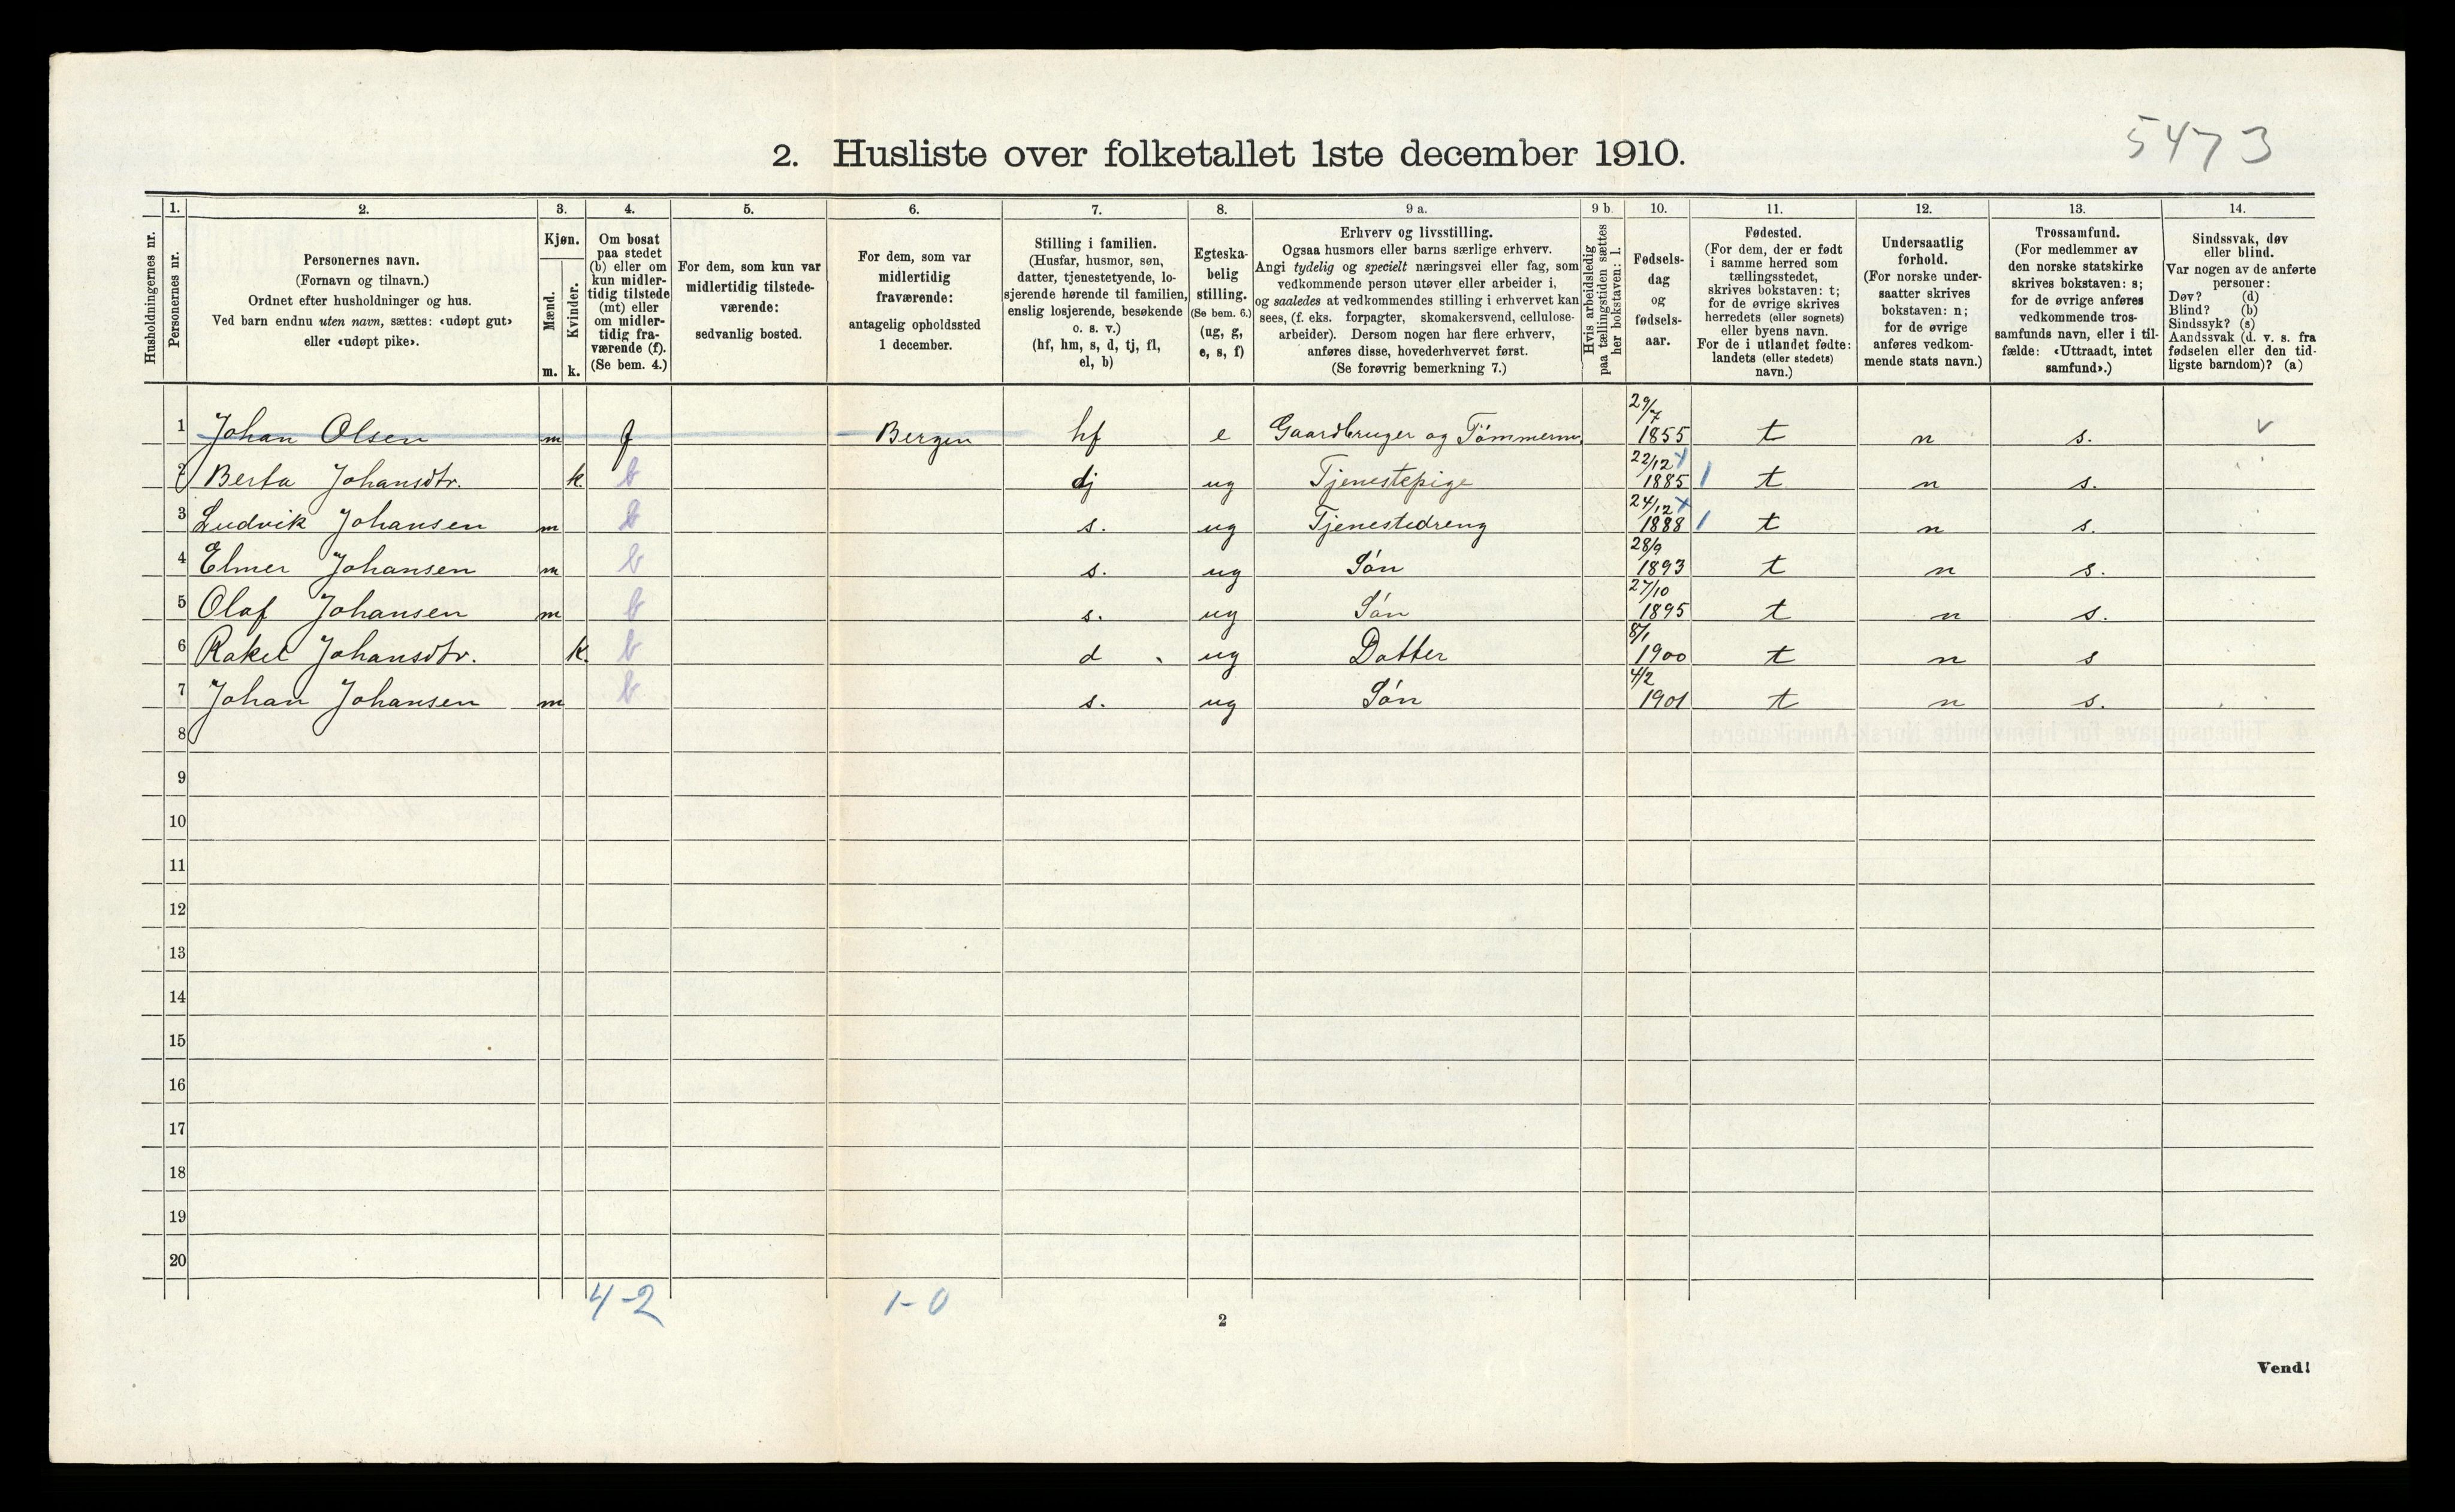 5473
2. Husliste over folketallet 1ste december 1910.
Husholdningernes nr.
1. Personernes nr.
2. Personernes navn.
(Fornavn og tilnavn.)
Ordnet efter husholdninger og hus.
Ved barn endnu uten navn, sættes: «udøpt gut»
eller «udøpt pike».
3. Kjøn.
Mænd. m.
Kvinder. k.
4. Om bosat
paa stedet
(b) eller om
kun midler-
tidig tilstede
(mt) eller
om midler-
tidig fra-
værende (f).
(Se bem. 4.)
5. For dem, som kun var
midlertidig tilstede-
værende:
sedvanlig bosted.
6. For dem, som var
midlertidig
fraværende:
antagelig opholdssted
1 december.
7. Stilling i familien.
(Husfar, husmor, søn,
datter, tjenestetyende, lo-
sjerende hørende til familien,
enslig losjerende, besøkende
o. s. v.)
(hf, hm, s, d, tj, fl,
el, b)
8. Egteska-
belig
stilling.
(Se bem. 6.)
(ug, g,
e, s, f)
9 a. Erhverv og livsstilling.
Ogsaa husmors eller barns særlige erhverv.
Angi tydelig og specielt næringsvei eller fag, som
vedkommende person utøver eller arbeider i,
og saaledes at vedkommendes stilling i erhvervet kan
sees, (f. eks. forpagter, skomakersvend, cellulose-
arbeider). Dersom nogen har flere erhverv,
anføres disse, hovederhvervet først.
(Se forøvrig bemerkning 7.)
9 b. Hvis arbeidsledig
paa tællingstiden sættes
her bokstaven: l.
10. Fødsels-
dag
og
fødsels-
aar.
11. Fødested.
(For dem, der er født
i samme herred som
tællingsstedet,
skrives bokstaven: t;
for de øvrige skrives
herredets (eller sognets)
eller byens navn.
For de i utlandet fødte:
landets (eller stedets)
navn.)
12. Undersaatlig
forhold.
(For norske under-
saatter skrives
bokstaven: n;
for de øvrige
anføres vedkom-
mende stats navn.)
13. Trossamfund.
(For medlemmer av
den norske statskirke
skrives bokstaven: s;
for de øvrige anføres
vedkommende tros-
samfunds navn, eller i til-
fælde: «Uttraadt, intet
samfund».)
14. Sindssvak, døv
eller blind.
Var nogen av de anførte
personer:
Døv? (d)
Blind? (b)
Sindssyk? (s)
Aandssvak (d. v. s. fra
fødselen eller den tid-
ligste barndom)? (a)
1 Johan Olsen m f Bergen hf e Gaardbruger og Tömmerm. 29/7 1855 t n s. v
2 Berta Johansdtr. k. b tj ug Tjenestepige 22/12 1885 t n s.
3 Ludvik Johansen m b s. ug Tjenestedreng 24/12 1888 t n s.
4 Elmer Johansen m b s. ug Sön 28/9 1893 t n s.
5 Olaf Johansen m b s. ug Sön 27/10 1895 t n s.
6 Rakel Johansdtr. k. b d ug Datter 8/1 1900 t n s
7 Johan Johansen m b s. ug Sön 4/2 1901 t n s.
8
9
10
11
12
13
14
15
16
17
18
19
20
4-2 1-0
2
Vend!